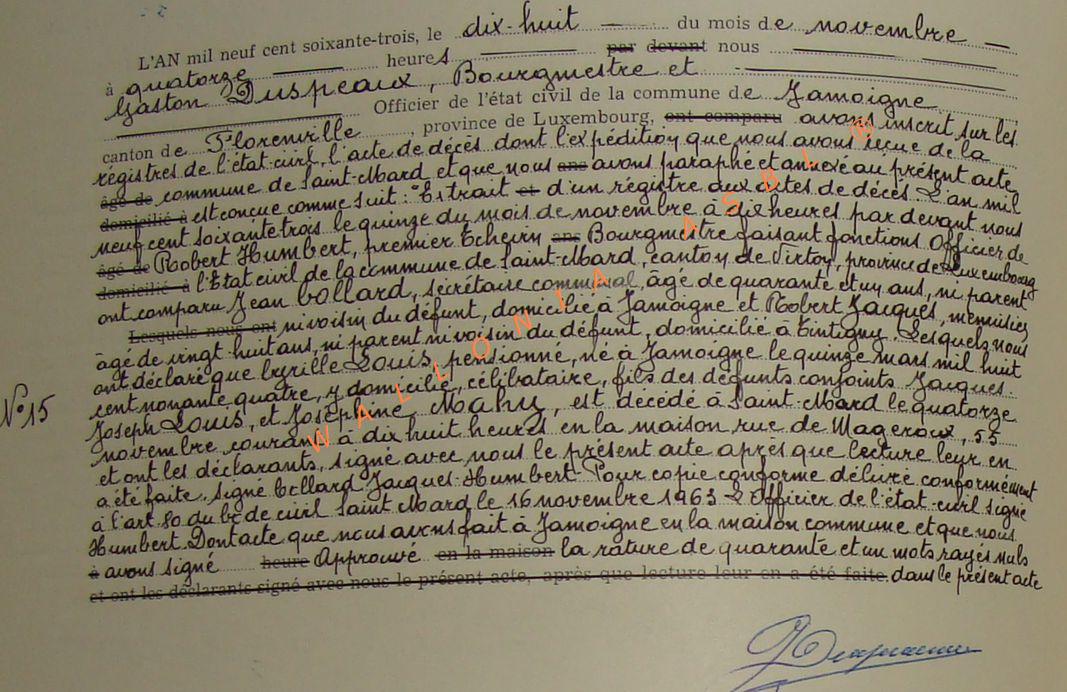 L'AN mil neuf cent soixante-trois, le dix-huit du mois de novembre
à quatorze heures par devant nous
Gaston Duspeaux, Bourgmestre et
Officier de l'état civil de la commune de Jamoigne
canton de Florenville, province de Luxembourg, ont comparu avons inscrit sur les
régistres de l'état-civil, l'acte de décès dont l'expédition que nous avons reçue de la
âgé de commune de Saint-Mard et que nous ans avons paraphé et annexé au présent acte
domicilié à est conçue comme suit: "Extrait et d'un régistre aux actes de décès. L'an mil
neuf cent soixante trois le quinze du mois de novembre à dix heures par devant nous
âgé de Robert Humbert, premier Echevin ans Bourgmestre faisant fonctions Officier de
domicilié à l'Etat civil de la commune de Saint-Mard, canton de Virton, province de Luxembourg
ont comparu Jean Collard, secrétaire communal, âgé de quarante et un ans, ni parent
Lesquels nous ont ni voisin du défunt, domicilié à Jamoigne et Robert Jacques, menuisier
âgé de vingt huit ans, ni parent ni voisin du défunt, domicilié à Tintigny. Lesquels nous
ont déclaré que Cyrille Louis, pensionné, né à Jamoigne le quinze mars mil huit
cent nonante quatre, y domicilié, célibataire, fils des défunts conjoints Jacques
N° 15
Joseph Louis, et Joséphine Mahy, est décédé à Saint-Mard le quatorze
novembre courant à dix huit heures en la maison rue de Mageroux, 55
et ont les déclarants, signé avec nous le présent acte après que lecture leur en
a été faite. signé Collard Jacques-Humbert Pour copie conforme délivré conformément
à l'art 80 du code civil Saint Mard le 16 novembre 1963 L'Officier de l'état-civil signé
Humbert. Dont acte que nous avons fait à Jamoigne en la maison commune et que nous
à avons signé heure Approuvé en la maison la rature de quarante et un mots rayés nuls
et ont les déclarants signé avec nous le présent acte, après que lecture leur en a été faite. dans le présent acte
WALLONIA ASBL